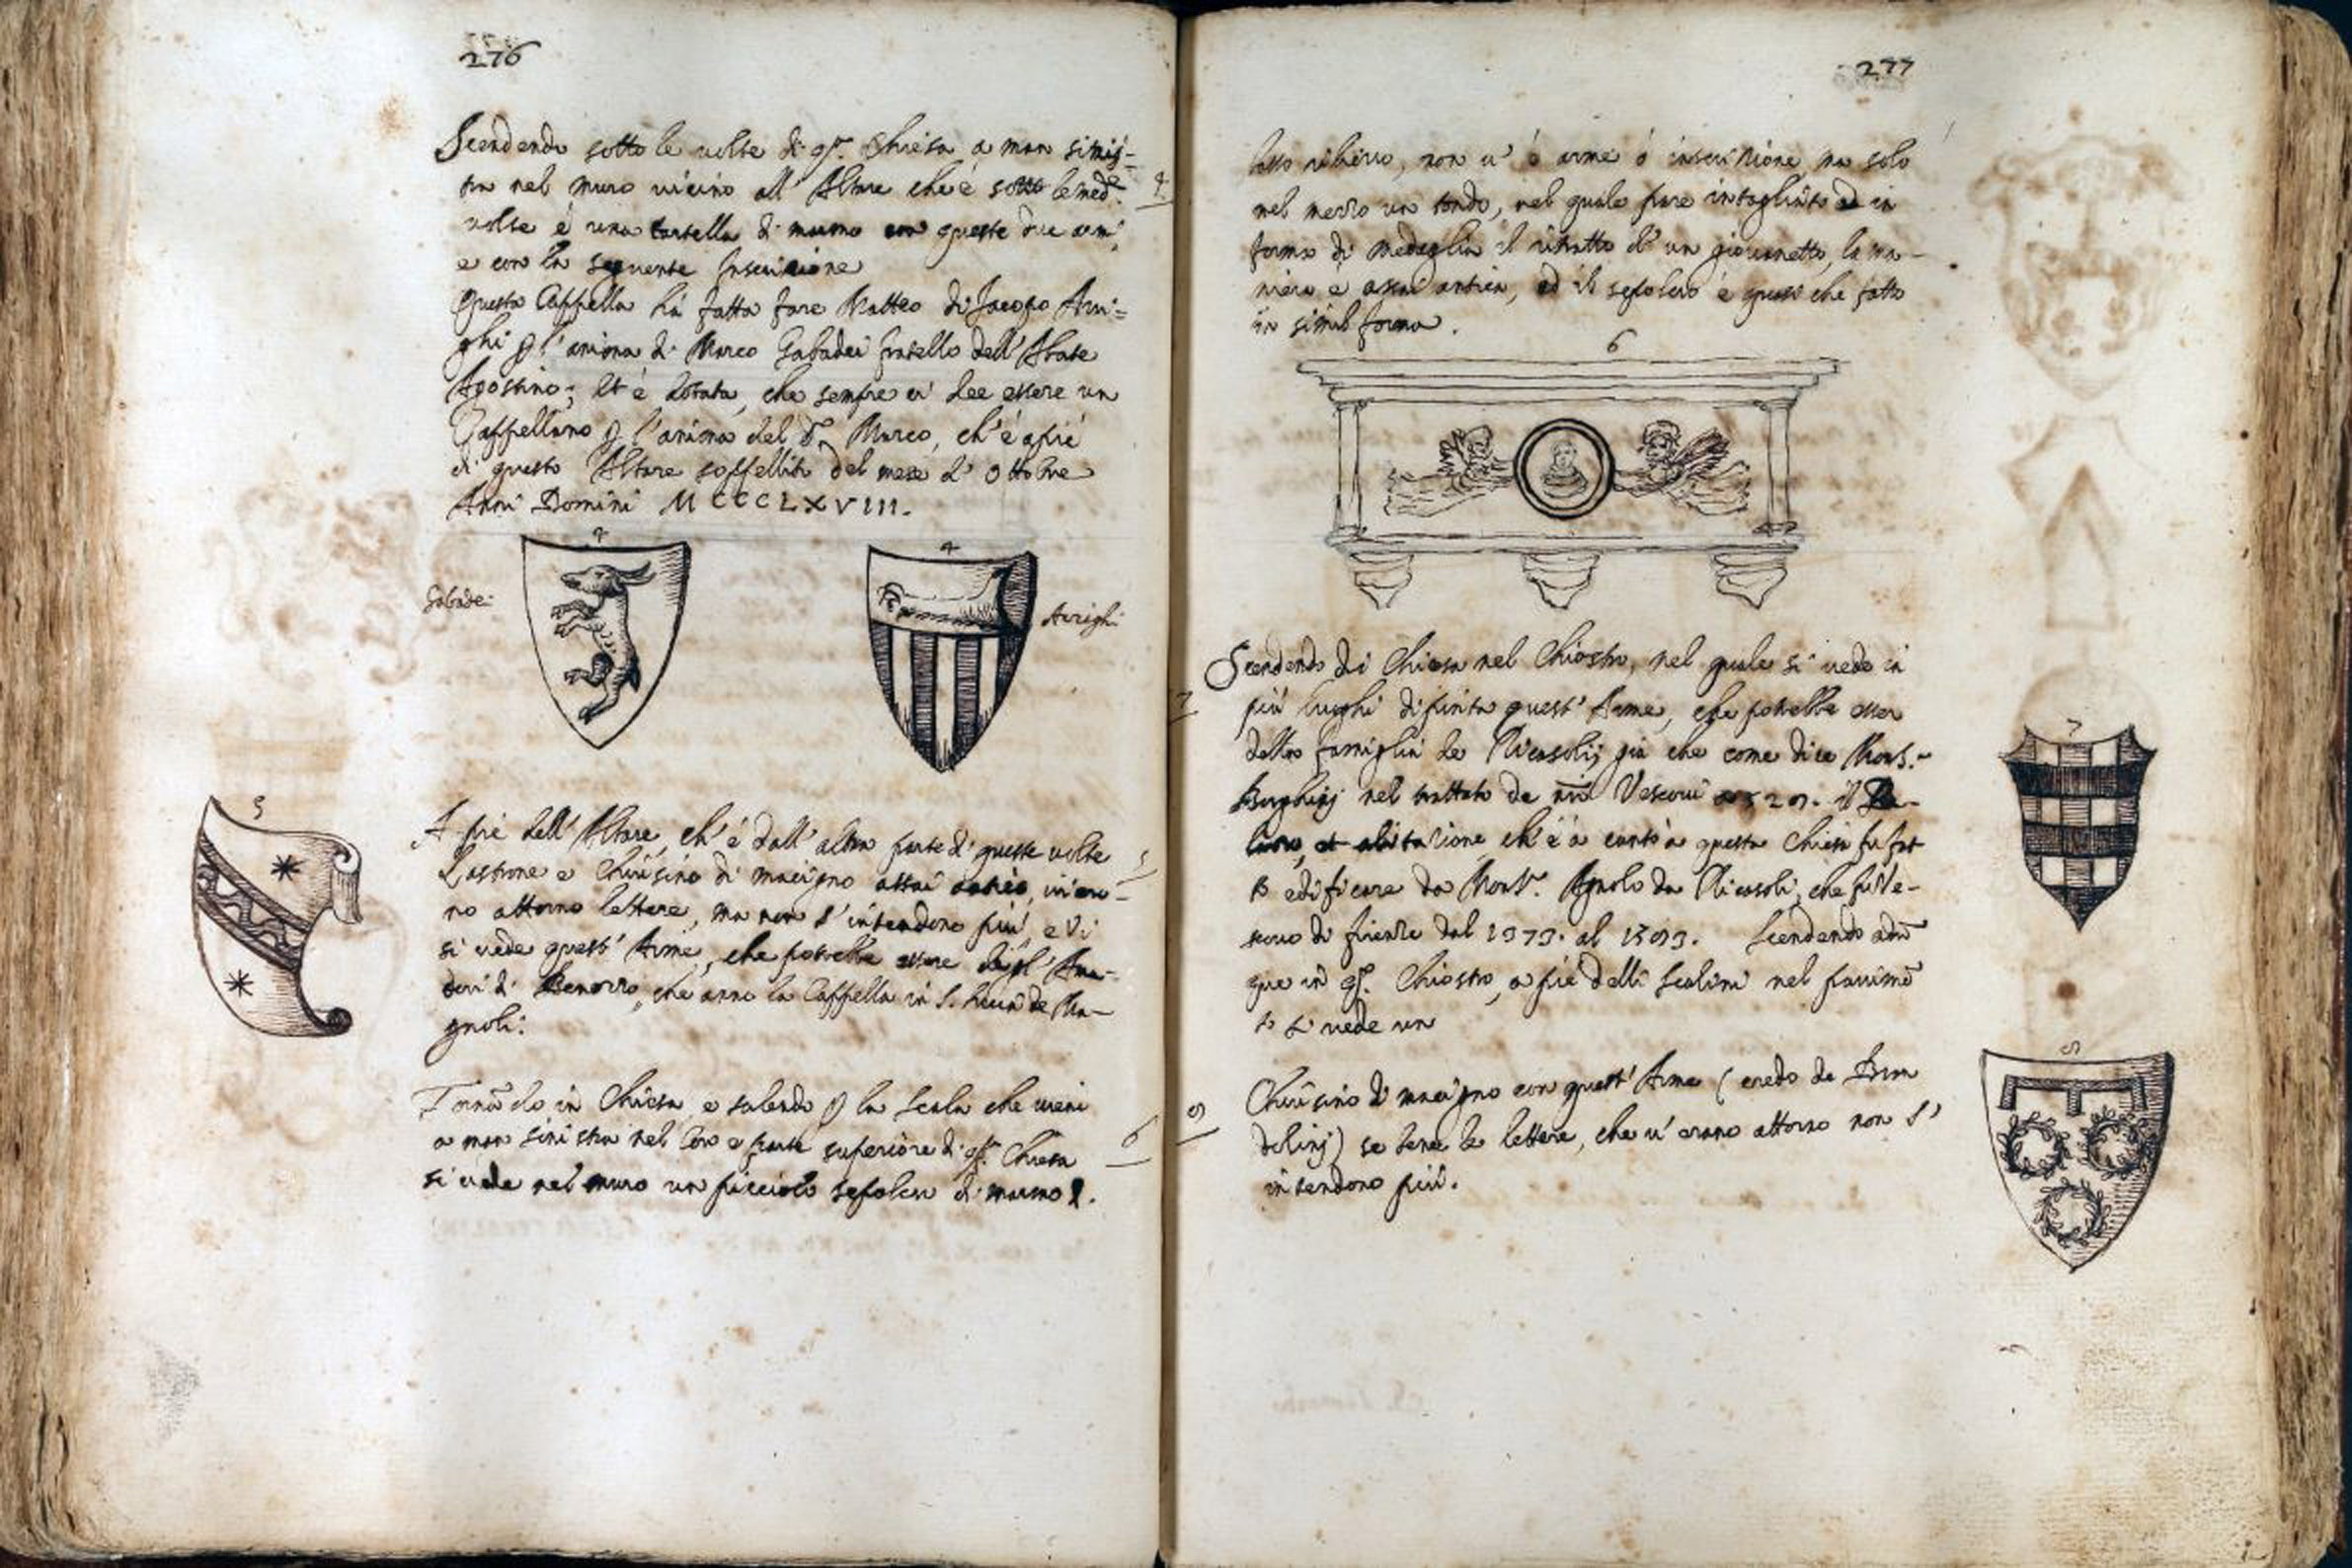 276
Scendendo sotto le volte di qta. Chiesa a man sinis-
tra nel muro vicino all' Altare che è sotto le med.e
volte è una cartella di marmo con queste due armi,
e con la seguente Inscrizione
Questa Cappella hà fatta fare Matteo di Jacopo Arri=
ghi p l'anima di Marco Gabadei fratello dell' Abate
Agostino; Et è dotata, che sempre vi dee essere un
Cappellano p l'anima del d.o Marco, ch'è apiè
di questo Altare soppellito del mese d' Ottobre
Anni Domini MCCCLXVIII.
4
4
4
Gabadei
Arrighi
5
A piè dell' Altare, ch'è dall' altra parte di queste volte
Lastrone e Chiusino di macigno assai antico, v'era-
no attorno lettere, ma non s'intendono più, e vi
si vede quest' Arme, che potrebbe essere degl' Ama-
dori di Benozzo, che anno la Cappella in S. Lucia de Ma-
gnoli:
5
Tornādo in Chiesa, e salendo p la Scala che viene
a man sinistra nel Coro e parte superiore di qta. Chiesa
si vede nel muro un piccolo sepolcro di marmo
6
277
basso rilievo, non v' è arme ò inscrizione, ma solo
nel mezzo un tondo, nel quale pare intagliato ed in
forma di medaglia il ritratto d' un giovanetto, la ma-
niera è assai antica, ed il sepolcro è quasi che fatto
in simil forma.
6
Scendendo di Chiesa nel Chiostro, nel quale si vede in
più luoghi dipinta quest' Arme, che potrebbe esser
della famiglia de Ricasoli, già che come dice Mons.r
Borghini nel trattato de nri Vescovi a 529. il Pa-
lazzo, et abitazione, ch'è a canto a questa Chiesa fu fat-
to edificare da Mons.r Agnolo da Ricasoli, che fu Ve-
scovo di firenze dal 1373. al 1393. Scendendo adū
que in qto. Chiostro, a piè delli Scalini nel pavimē
to si vede un
7
7
Chiusino di macigno con quest' Arme (credo de Bron
dolini) se bene le lettere, che v' erano attorno non s'
intendono più.
8
8